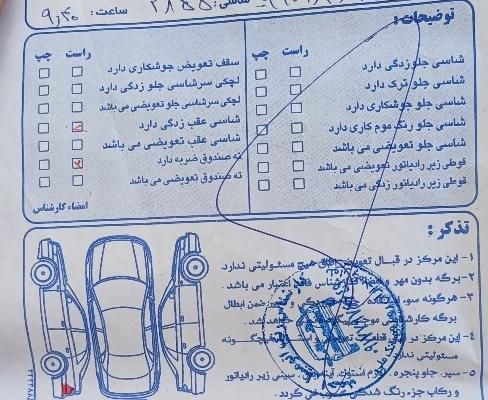 شاسی: ۲۸۵۵ ساعت: ۹٫۴۰
توضیحات:
راست چپ
شاسی جلو زدگی دارد
شاسی جلو ترک دارد
شاسی جلو جوشکاری دارد
شاسی جلو رنگ موم کاری دارد
شاسی جلو تعویضی می باشد
قوطی زیر رادیاتور تعویضی می باشد
قوطی زیر رادیاتور زدگی می باشد
راست چپ
سقف تعویض جوشکاری دارد
لچکی سرشاسی جلو زدگی دارد
لچکی سرشاسی جلو تعویضی می باشد
شاسی عقب زدگی دارد
شاسی عقب تعویضی می باشد
ته صندوق ضربه دارد
ته صندوق تعویضی می باشد
امضاء کارشناس
تذکر:
۱- این مرکز در قبال تعویض اتاق هیچ مسئولیتی ندارد.
۲- برگه بدون مهر و کارشناس فاقد اعتبار می باشد.
۳- هرگونه سوء استفاده و ضمن ابطال
برگه کارشناسی موجب
۴- این مرکز در قبال هیچگونه
مسئولیتی ندارد
۵- سپر، جلو پنجره، سینی زیر رادیاتور
و رکاب جزء رنگ شدگی نمی گردد.